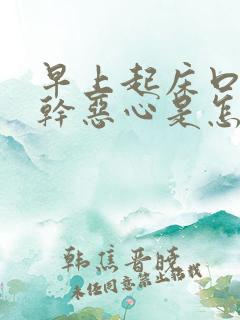 早上起床口
幹惡心是怎
韩焦晋晓
未经同意禁止转载